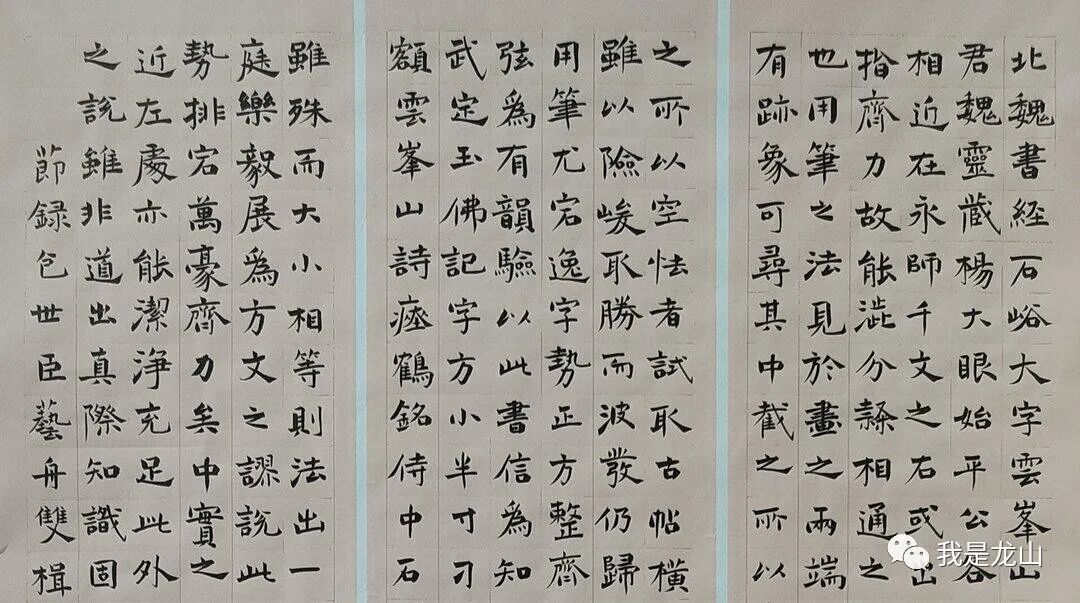 北魏書經石峪大字雲峯山
君魏靈藏楊大眼始平公各
相近在永師千文之右或出
指齊力故能澁分隸相通之
也用筆之法見於畫之兩端
有跡象可尋其中截之所以
之所以空怯者試取古帖橫
雖以險峻取勝而波發仍歸
用筆尤宕逸字勢正方整齊
弦爲有韻驗以此書信爲知
武定玉佛記字方小半寸刁
額雲峯山詩瘞鶴銘侍中石
雖殊而大小相等則法出一
庭樂毅展爲方文之謬説此
勢排宕萬豪齊力矣中實之
近左處亦能潔淨充足此外
之説雖非道出真際知識固
節録包世臣藝舟雙楫
我是龙山